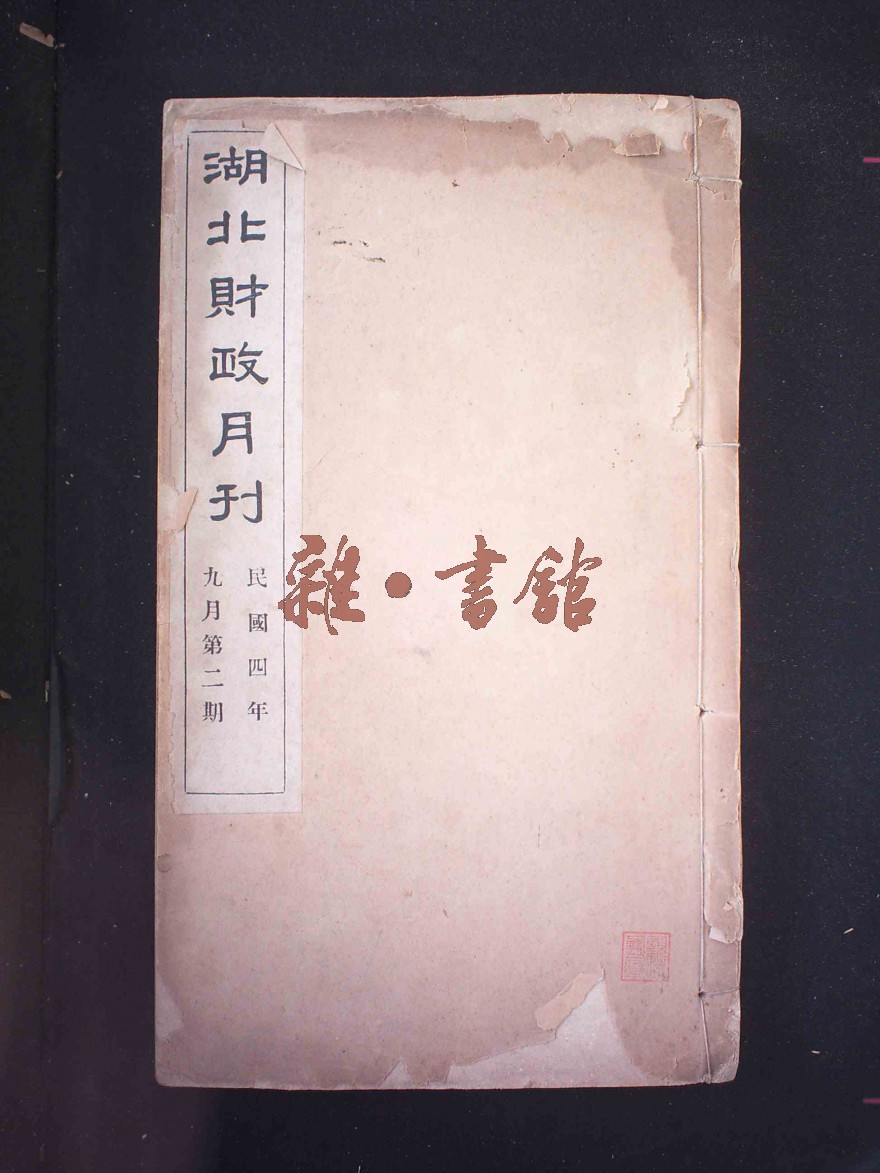 湖北財政月刊
民國四年
九月第二期
雜·書館